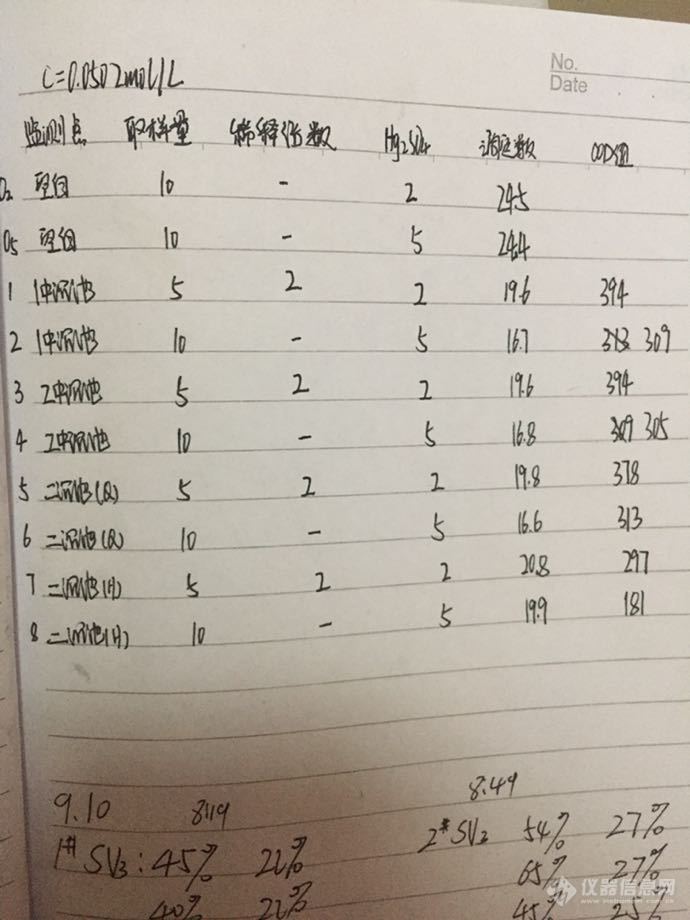 No.
Date
C=0.0502mol/L
监测点 取样量 稀释倍数 Hg2SO4 滴定数 COD值
02 空白 10 - 2 24.5
05 空白 10 - 5 24.4
1 1中沉池 5 2 2 19.6 394
2 1中沉池 10 - 5 16.7 313 309
3 2中沉池 5 2 2 19.6 394
4 2中沉池 10 - 5 16.8 309 305
5 二沉池(Q) 5 2 2 19.8 378
6 二沉池(Q) 10 - 5 16.6 313
7 二沉池(H) 5 2 2 20.8 297
8 二沉池(H) 10 - 5 19.9 181
9.10 8:19 8:49
1# SV3: 45% 22% 2# SV3 54% 27%
65% 27%
40% 22% 45% 25%
仪器信息网
www.instrument.com.cn